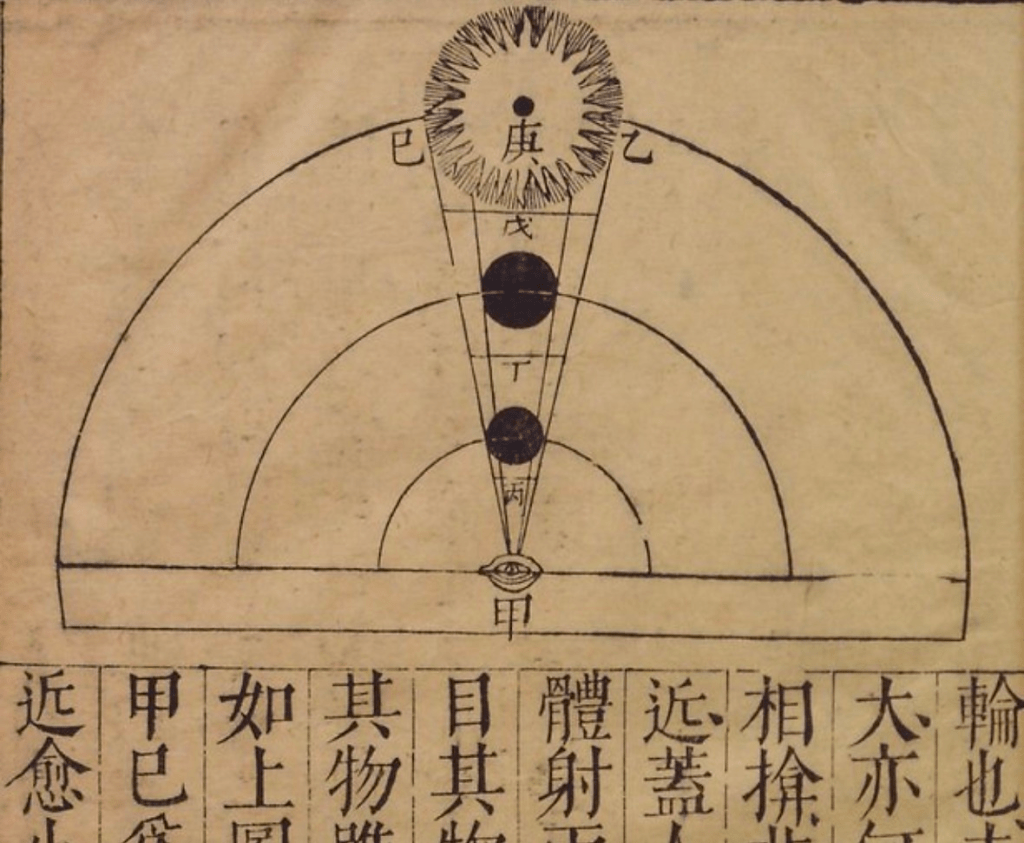 庚
巳
乙
戊
丁
丙
甲
輪也
大亦
相揜
近蓋
體射
目其物
其物雖
如上圖
甲巳
近愈